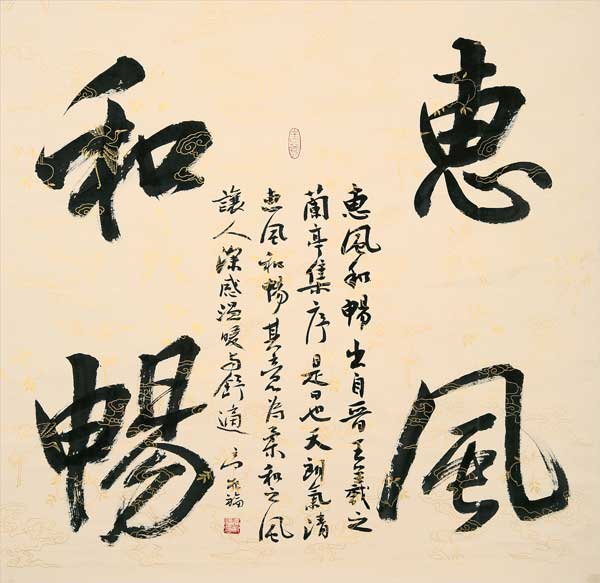 惠風
和暢
惠風和暢出自晉王羲之
蘭亭集序是日也天朗氣清
惠風和暢其意為柔和之風
讓人深感溫暖与舒適